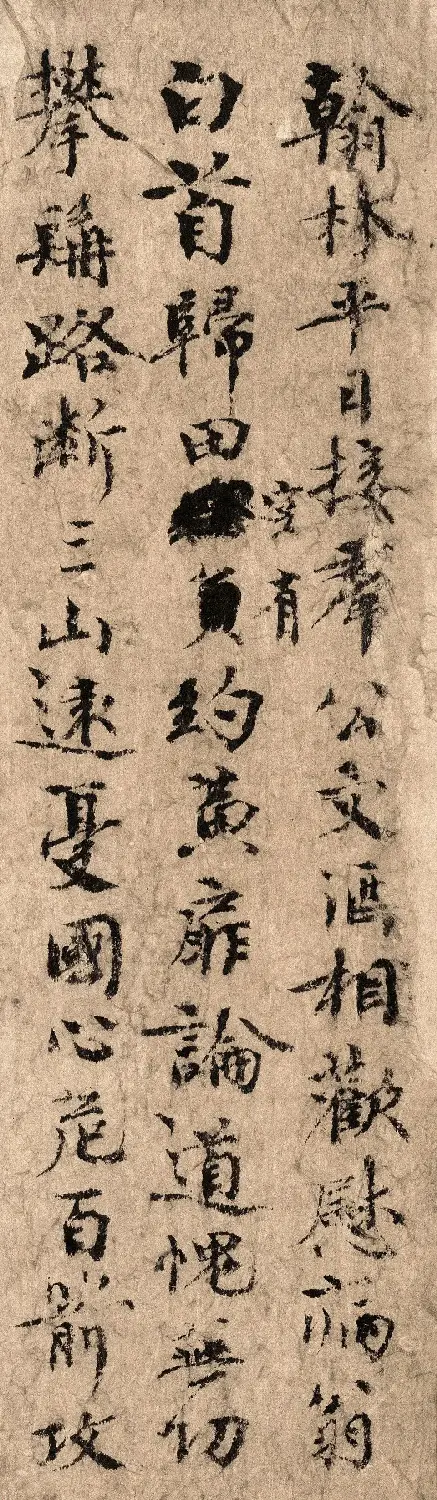 翰林平日接羣公文酒相歡慰病翁
空有
白首歸田負約黃扉論道愧無功
攀髯路斷三山遠憂國心危百箭攻